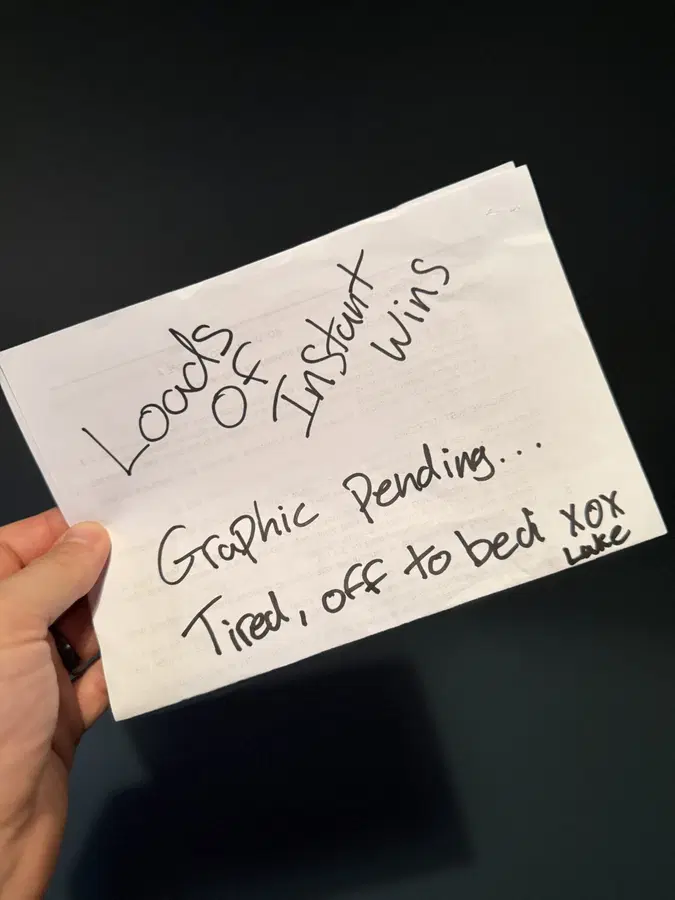 Loads
Of
Instant
Wins
Graphic Pending...
Tired, off to bed xox
Lake